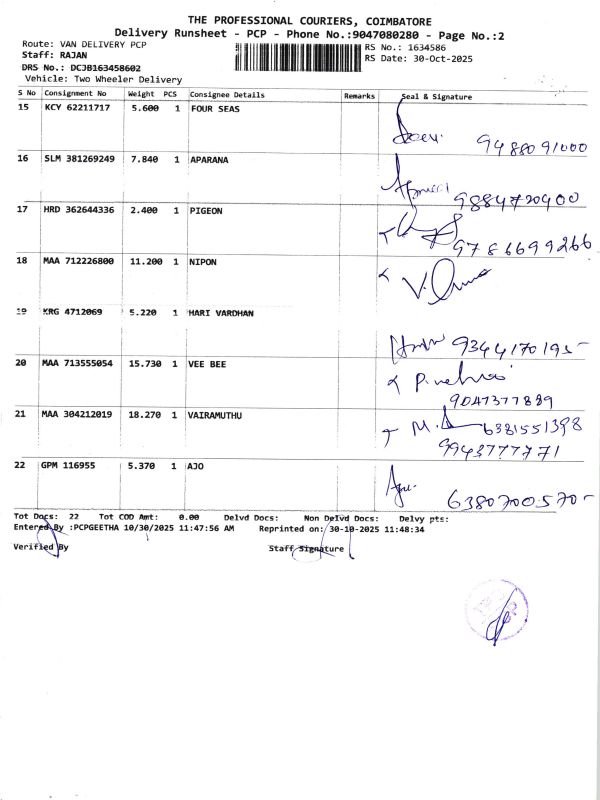 THE PROFESSIONAL COURIERS, COIMBATORE
Delivery Runsheet - PCP - Phone No.:9047080280 - Page No.:2
Route: VAN DELIVERY PCP RS No.: 1634586
Staff: RAJAN RS Date: 30-Oct-2025
DRS No.: DCJB163458602
Vehicle: Two Wheeler Delivery
S No Consignment No Weight PCS Consignee Details Remarks Seal & Signature
15 KCY 62211717 5.600 1 FOUR SEAS
9488091000
16 SLM 381269249 7.840 1 APARANA
9884720400
17 HRD 362644336 2.400 1 PIGEON
9786699266
18 MAA 712226800 11.200 1 NIPON
19 KRG 4712069 5.220 1 HARI VARDHAN
9344170195
20 MAA 713555054 15.730 1 VEE BEE
9047377889
21 MAA 304212019 18.270 1 VAIRAMUTHU
6381551398
9943777771
22 GPM 116955 5.370 1 AJO
6380700570
Tot Docs: 22 Tot COD Amt: 0.00 Delvd Docs: Non Delvd Docs: Delvy pts:
Entered By :PCPGEETHA 10/30/2025 11:47:56 AM Reprinted on: 30-10-2025 11:48:34
Verified By Staff Signature